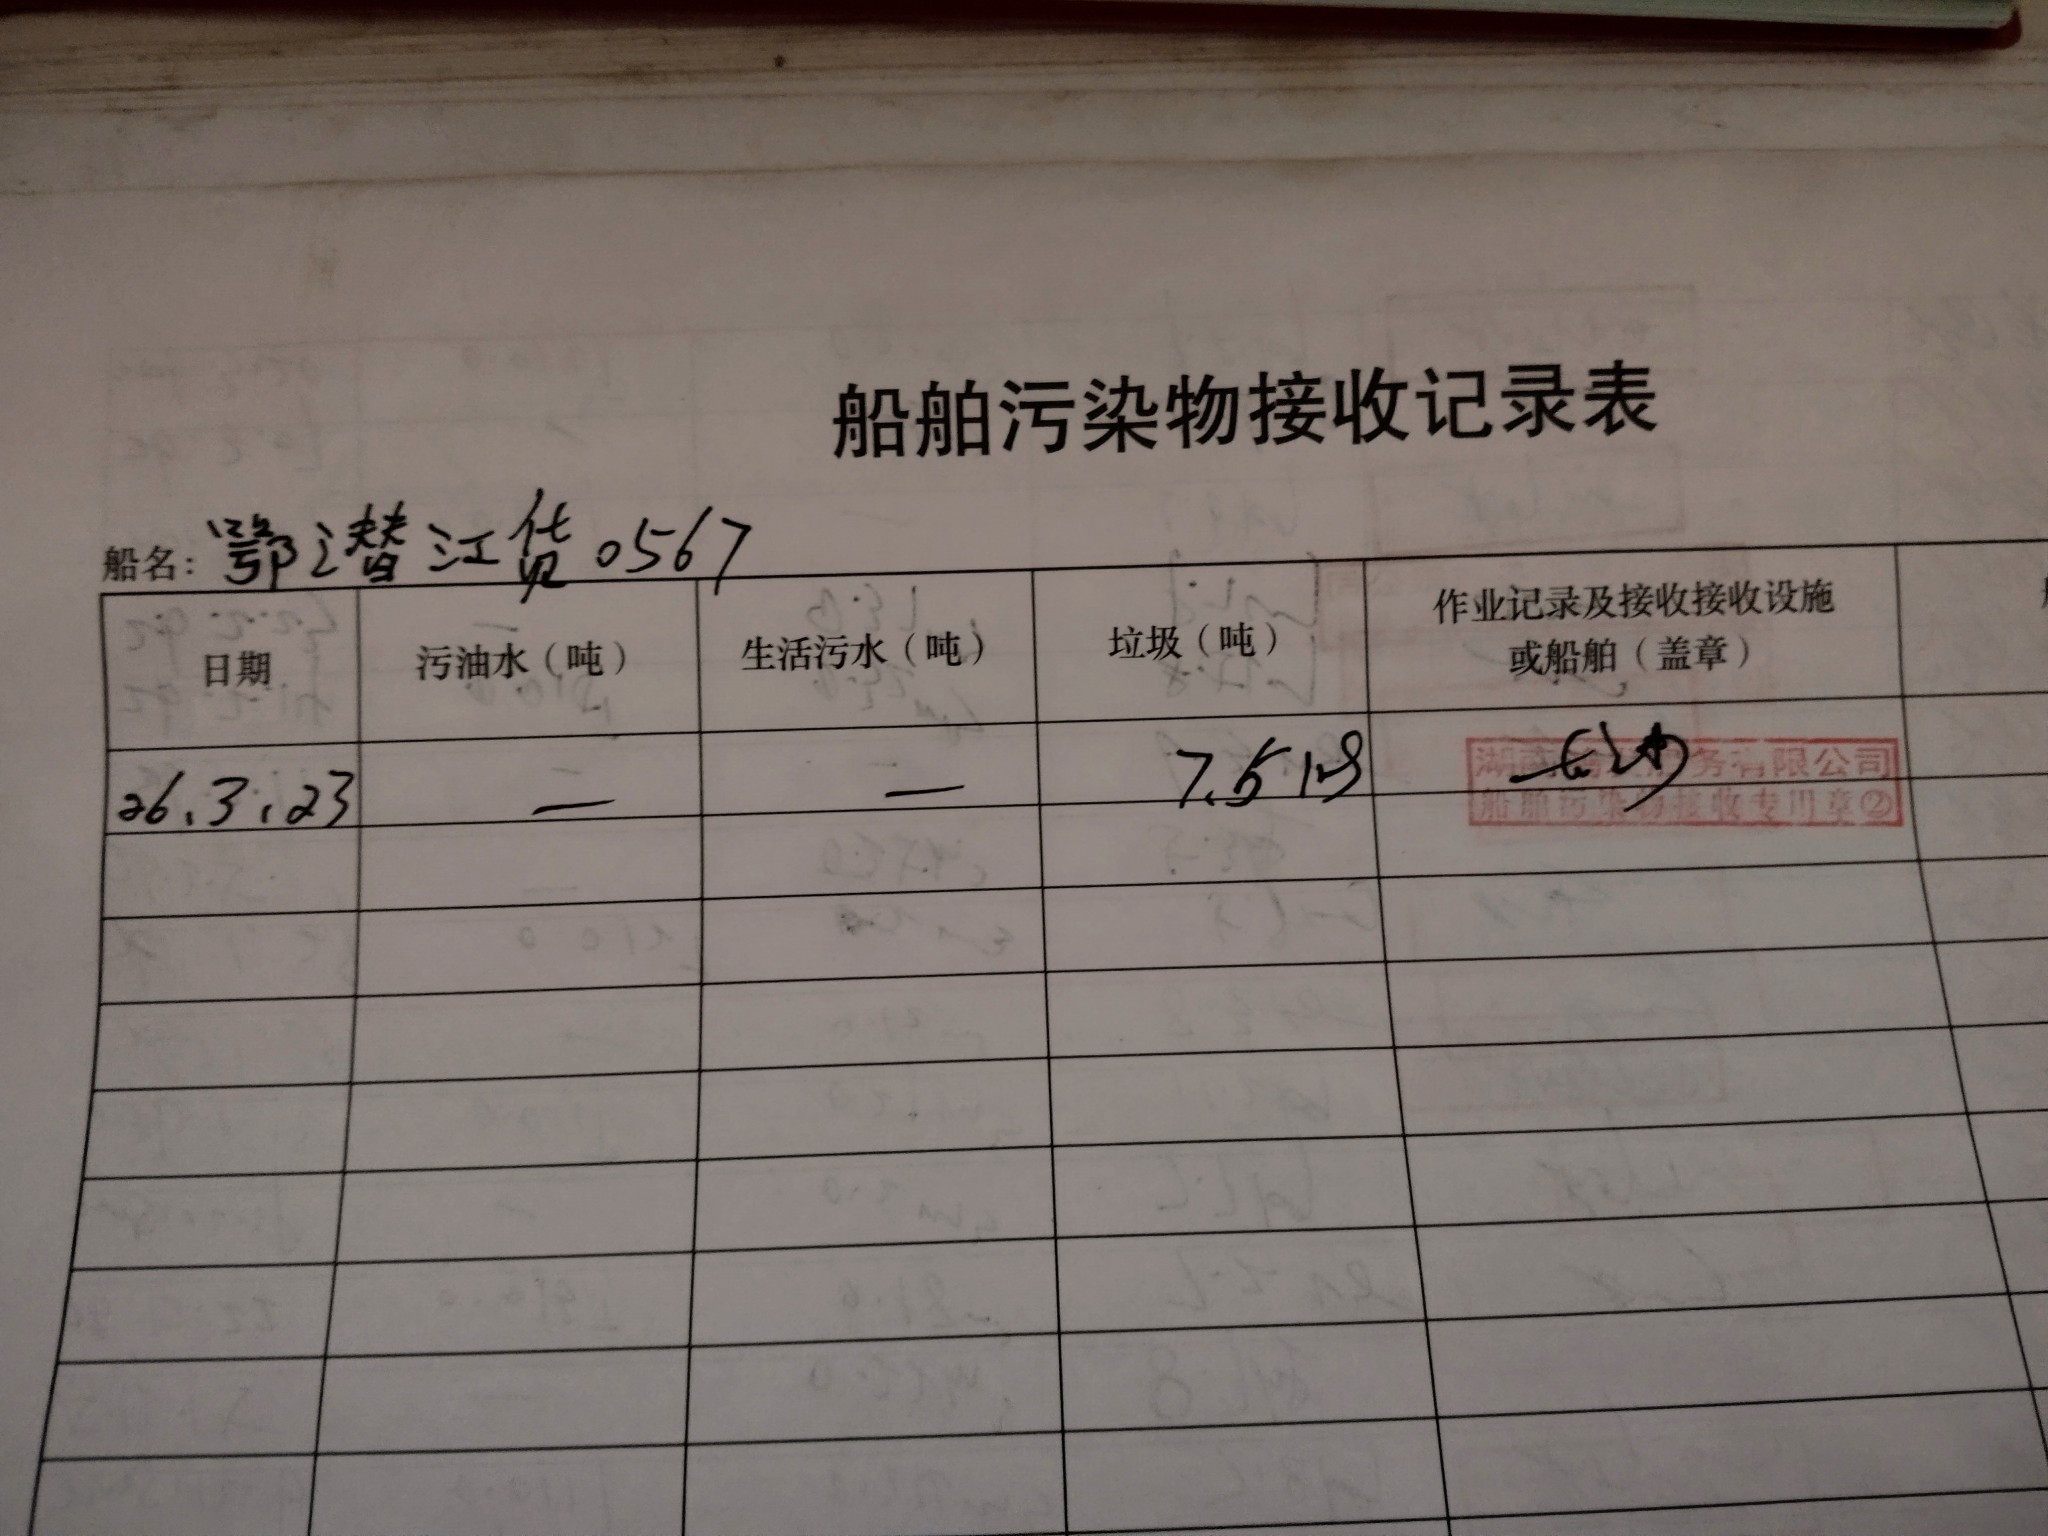 船舶污染物接收记录表
船名：鄂潜江货0567
日期 污油水（吨） 生活污水（吨） 垃圾（吨） 作业记录及接收接收设施
或船舶（盖章）
26.3.23 — — 7.5
湖南 务有限公司
船舶污染物接收专用章②